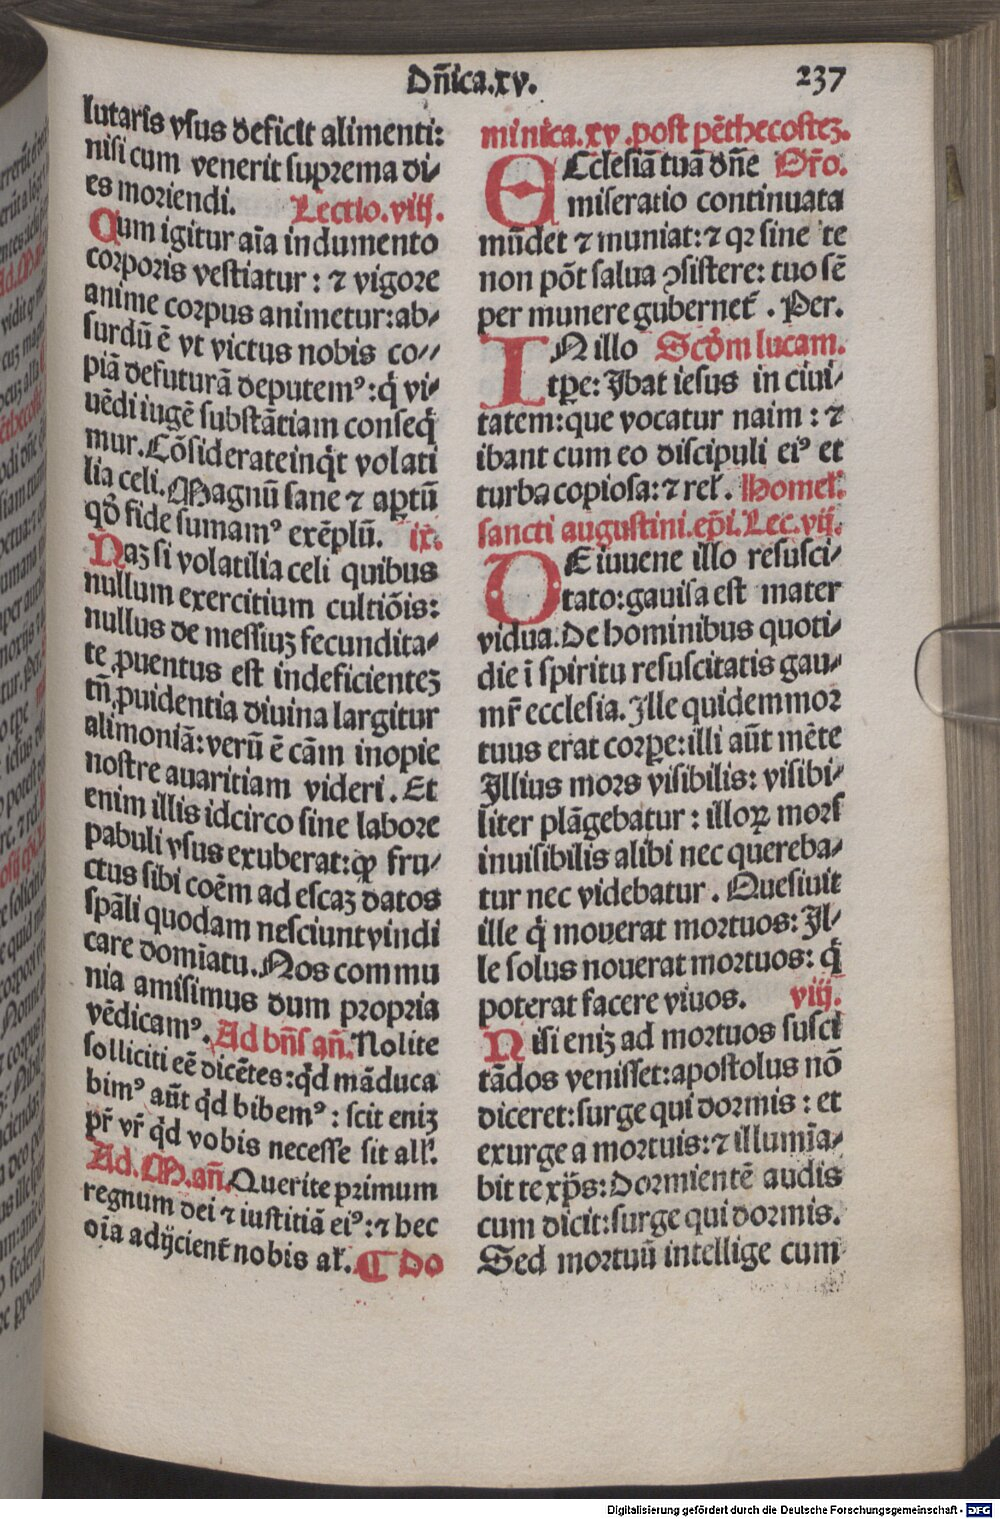 Dn̄ica.xv.
237
lutaris vsus deficit alimenti:
nisi cum venerit suprema di⸗
es moriendi. Lectio.viij.
Cum igitur aīa indumento
corporis vestiatur: ⁊ vigore
anime corpus animetur:ab⸗
surdū ē vt victus nobis co⸗
piā defuturā deputemꝰ:q̇ vi⸗
uēdi iugē substātiam conseq̇
mur. Cōsiderate inq̇t volati
lia celi. Magnū sane ⁊ aptū
qḋ fide sumamꝰ exēplū. ix.
Naꝫ si volatilia celi quibus
nullum exercitium cultiōis:
nullus de messiuꝫ fecundita⸗
te ꝓuentus est indeficienteꝫ
tn̄ ꝓuidentia diuina largitur
alimoniā: verū ē cām inopie
nostre auaritiam videri. Et
enim illis idcirco sine labore
pabuli vsus exuberat: ꝙ fru⸗
ctus sibi coēm ad escaꝫ datos
spāli quodam nesciunt vindi
care domīatu. Nos commu
nia amisimus dum propria
vēdicamꝰ. Ad bn̄s an̄. Nolite
solliciti eē dicētes: qḋ māduca
bimꝰ aūt qḋ bibemꝰ: scit eniꝫ
pr̄ vr̄ qḋ vobis necesse sit all'.
Ad. M. an̄. Querite primum
regnum dei ⁊ iustitiā eiꝰ: ⁊ hec
oīa adijcient̄ nobis al'. ¶ Do
minica.xv.post pēthecosteꝫ.
ECclesiā tuā dn̄e Or̄o.
miseratio continuata
mūdet ⁊ muniat: ⁊ qꝛ sine te
non pōt salua ꝯsistere: tuo sē
per munere gubernet̄. Per.
IN illo Scḋm lucam.
tpe: Ibat iesus in ciui⸗
tatem: que vocatur naim: ⁊
ibant cum eo discipuli eiꝰ et
turba copiosa: ⁊ rel'. Homel'.
sancti augustini.ep̄i.Lec.vij.
DE iuuene illo resusci⸗
tato: gauisa est mater
vidua. De hominibus quoti⸗
die ī spiritu resuscitatis gau⸗
mr̄ ecclesia. Ille quidem mor
tuus erat corpe: illi aūt mēte
Illius mors visibilis: visibi⸗
liter plāgebatur: illoꝝ mors
inuisibilis alibi nec quereba⸗
tur nec videbatur. Quesiuit
ille q̇ mouerat mortuos: Il⸗
le solus nouerat mortuos: q̇
poterat facere viuos. viij.
Nisi eniꝫ ad mortuos susci
tādos venisset: apostolus nō
diceret: surge qui dormis: et
exurge a mortuis: ⁊ illumīa⸗
bit te xp̄s: Dormientē audis
cum dicit: surge qui dormis.
Sed mortuū intellige cum
Digitalisierung gefördert durch die Deutsche Forschungsgemeinschaft - DFG